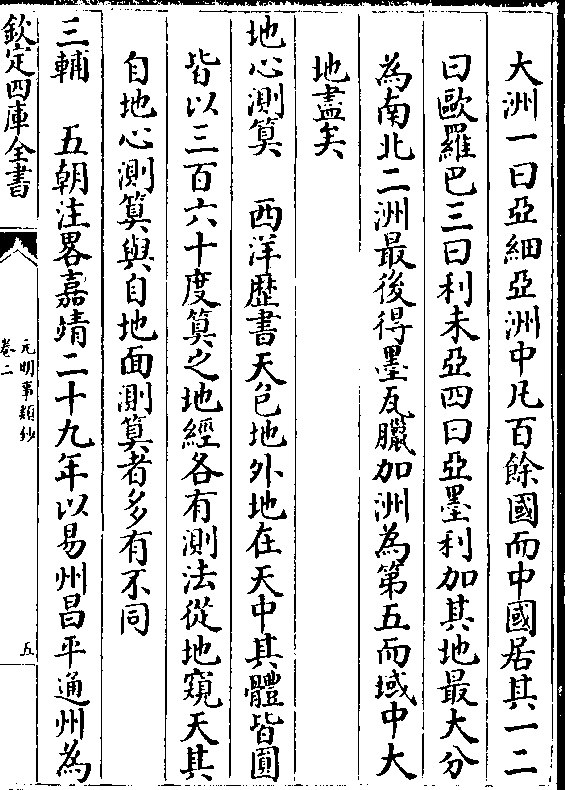 大洲一曰亞細亞洲中凡百餘國而中國居其一二
曰歐羅巴三曰利未亞四曰亞墨利加其地最大分
為南北二洲最後得墨瓦臘加洲為第五而域中大
地盡矣
地心測算　西洋歴書天包地外地在天中其體皆圓
皆以三百六十度算之地經各有測法從地窺天其
自地心測算與自地面測算者多有不同
三輔　五朝注畧嘉靖二十九年以易州昌平通州為
欽定四庫全書
元明事類鈔
卷二
五